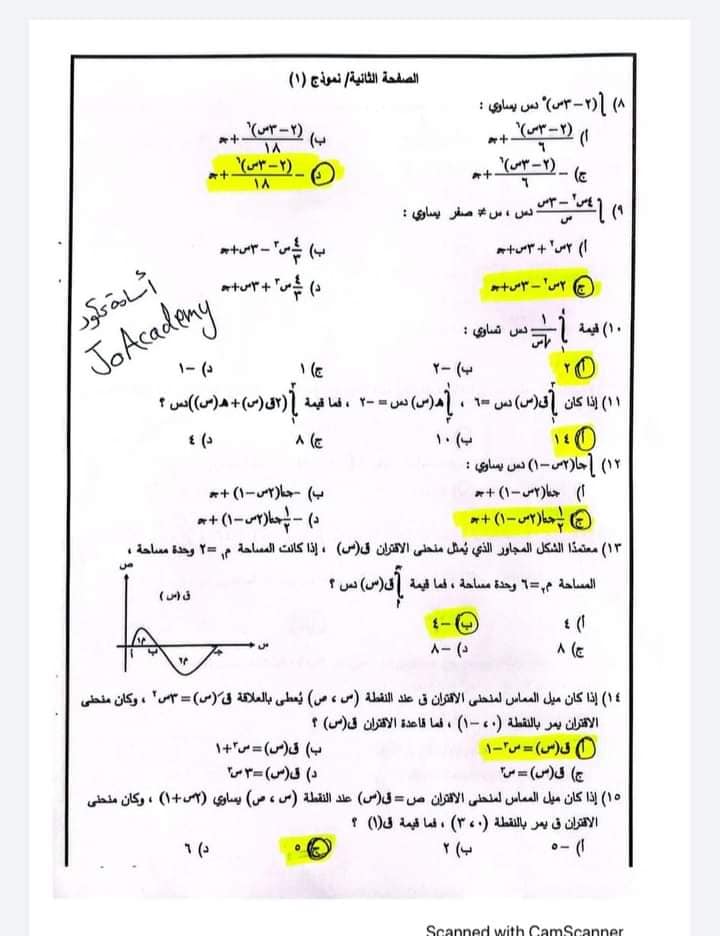 الصفحة الثانية/ نموذج (١)
٨) ∫(٢-٣س)° دس يساوي :
أ) (٢-٣س)٦/٦ + ج ب) (٢-٣س)٦/١٨ + ج
ج) -(٢-٣س)٦/٦ + ج د) -(٢-٣س)٦/١٨ + ج
٩) ∫ (٤س٢-٣س)/س دس ، س≠ صفر يساوي :
أ) ٢س٢+٣س+ج ب) ٤/٣س٣-٣س+ج
ج) ٢س٢-٣س+ج د) ٤/٣س٣+٣س+ج
أسامة عكور
JoAcademy
١٠) قيمة ∫ ١/√س دس تساوي :
أ) ٢ ب) -٢ ج) ١ د) -١
١١) إذا كان ∫ق(س) دس =٦ ، ∫ه(س) دس = -٢ ، فما قيمة ∫(٢ق(س)+ه(س))دس ؟
أ) ١٤ ب) ١٠ ج) ٨ د) ٤
١٢) ∫جا(٢س-١) دس يساوي :
أ) جتا(٢س-١) +ج ب) -جتا(٢س-١) +ج
ج) ١/٢جتا(٢س-١) +ج د) -١/٢جتا(٢س-١) +ج
١٣) معتمدًا الشكل المجاور الذي يُمثل منحنى الاقتران ق(س) ، إذا كانت المساحة م١ =٢ وحدة مساحة ،
المساحة م٢=٦ وحدة مساحة ، فما قيمة ∫ق(س) دس ؟
أ) ٤ ب) -٤
ج) ٨ د) -٨
ص
ق (س)
س
م١
م٢
ب
ج
١٤) إذا كان ميل المماس لمنحنى الاقتران ق عند النقطة (س ، ص) يُعطى بالعلاقة قَ(س)=٣س٢ ، وكان منحنى
الاقتران يمر بالنقطة (٠ ، -١) ، فما قاعدة الاقتران ق(س) ؟
أ) ق(س)=س٣-١ ب) ق(س)=س٣+١
ج) ق(س)=س٣ د) ق(س)=٣س٣
١٥) إذا كان ميل المماس لمنحنى الاقتران ص=ق(س) عند النقطة (س ، ص) يساوي (٢س+١) ، وكان منحنى
الاقتران ق يمر بالنقطة (٠ ، ٣) ، فما قيمة ق(١) ؟
أ) -٥ ب) ٢ ج) ٥ د) ٦
Scanned with CamScanner